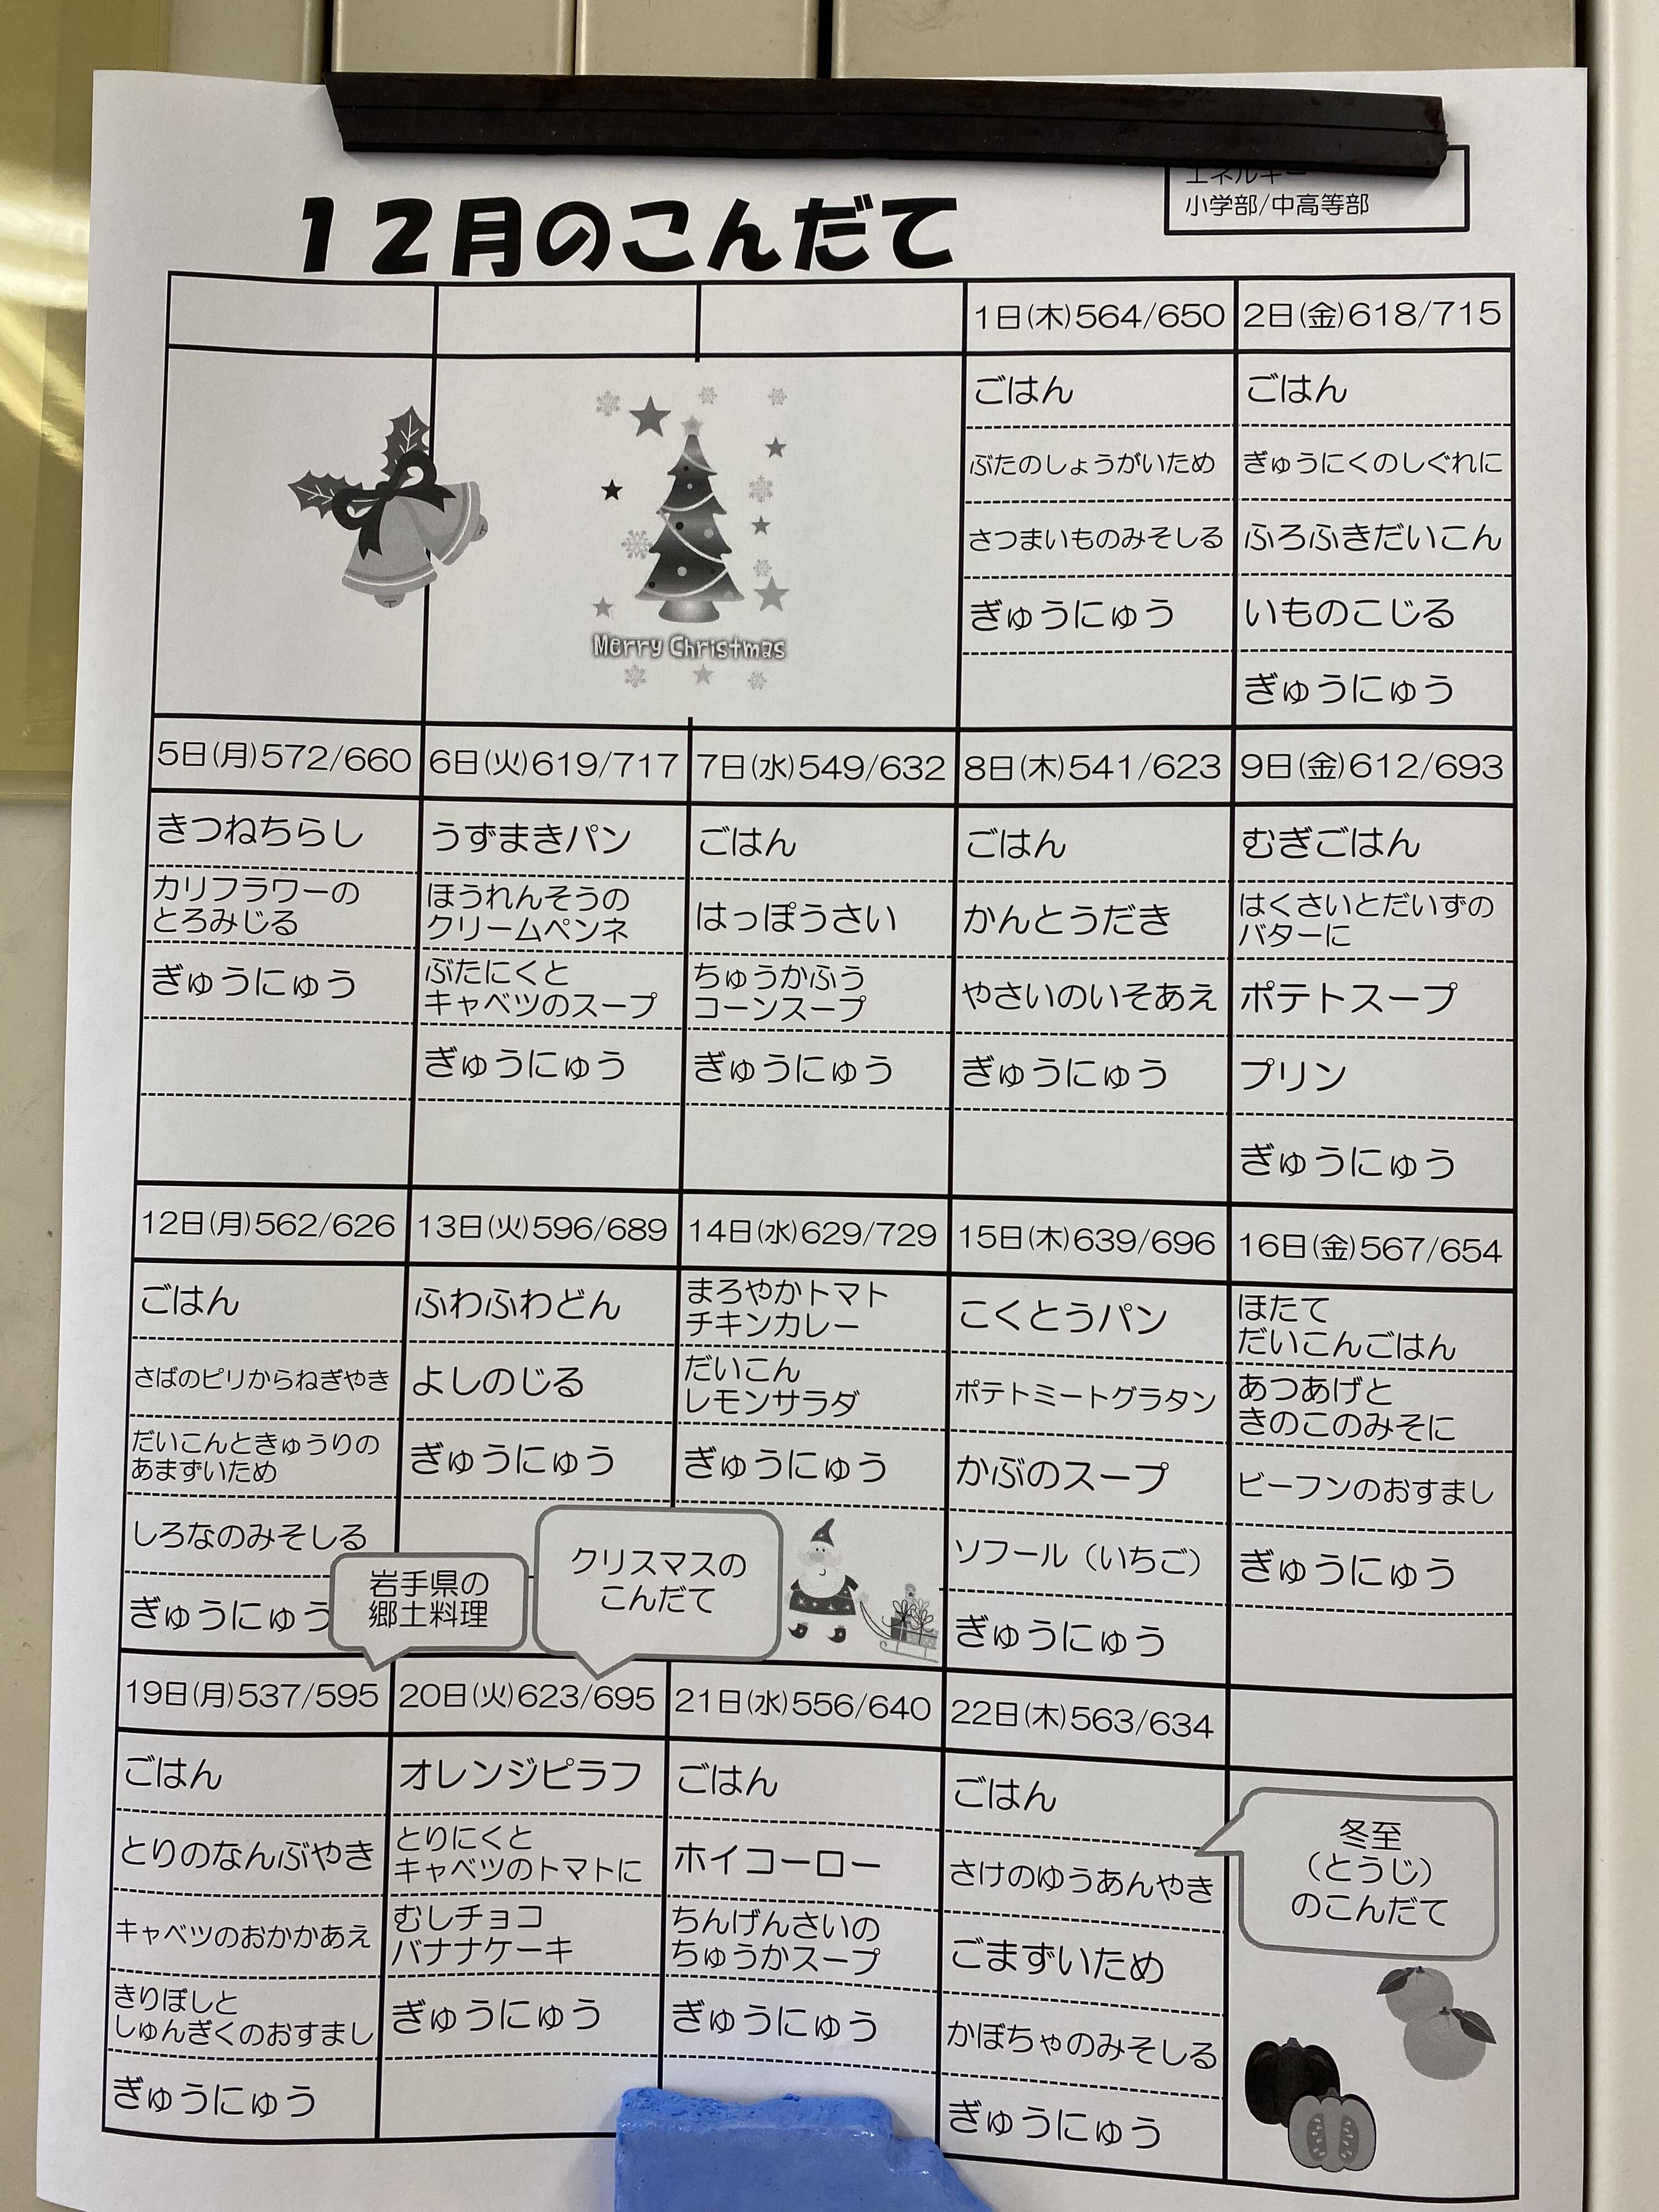 エネルギー
小学部/中高等部
１２月のこんだて
1日(木)564/650
ごはん
ぶたのしょうがいため
さつまいものみそしる
ぎゅうにゅう
2日(金)618/715
ごはん
ぎゅうにくのしぐれに
ふろふきだいこん
いものこじる
ぎゅうにゅう
Merry Christmas
5日(月)572/660
きつねちらし
カリフラワーの
とろみじる
ぎゅうにゅう
6日(火)619/717
うずまきパン
ほうれんそうの
クリームペンネ
ぶたにくと
キャベツのスープ
ぎゅうにゅう
7日(水)549/632
ごはん
はっぽうさい
ちゅうかふう
コーンスープ
ぎゅうにゅう
8日(木)541/623
ごはん
かんとうだき
やさいのいそあえ
ぎゅうにゅう
9日(金)612/693
むぎごはん
はくさいとだいずの
バターに
ポテトスープ
プリン
ぎゅうにゅう
12日(月)562/626
ごはん
さばのピリからねぎやき
だいこんときゅうりの
あまずいため
しろなのみそしる
ぎゅうにゅう
13日(火)596/689
ふわふわどん
よしのじる
ぎゅうにゅう
14日(水)629/729
まろやかトマト
チキンカレー
だいこん
レモンサラダ
ぎゅうにゅう
15日(木)639/696
こくとうパン
ポテトミートグラタン
かぶのスープ
ソフール（いちご）
ぎゅうにゅう
16日(金)567/654
ほたて
だいこんごはん
あつあげと
きのこのみそに
ビーフンのおすまし
ぎゅうにゅう
岩手県の
郷土料理
クリスマスの
こんだて
19日(月)537/595
ごはん
とりのなんぶやき
キャベツのおかかあえ
きりぼしと
しゅんぎくのおすまし
ぎゅうにゅう
20日(火)623/695
オレンジピラフ
とりにくと
キャベツのトマトに
むしチョコ
バナナケーキ
ぎゅうにゅう
21日(水)556/640
ごはん
ホイコーロー
ちんげんさいの
ちゅうかスープ
ぎゅうにゅう
22日(木)563/634
ごはん
さけのゆうあんやき
ごまずいため
かぼちゃのみそしる
ぎゅうにゅう
冬至
（とうじ）
のこんだて